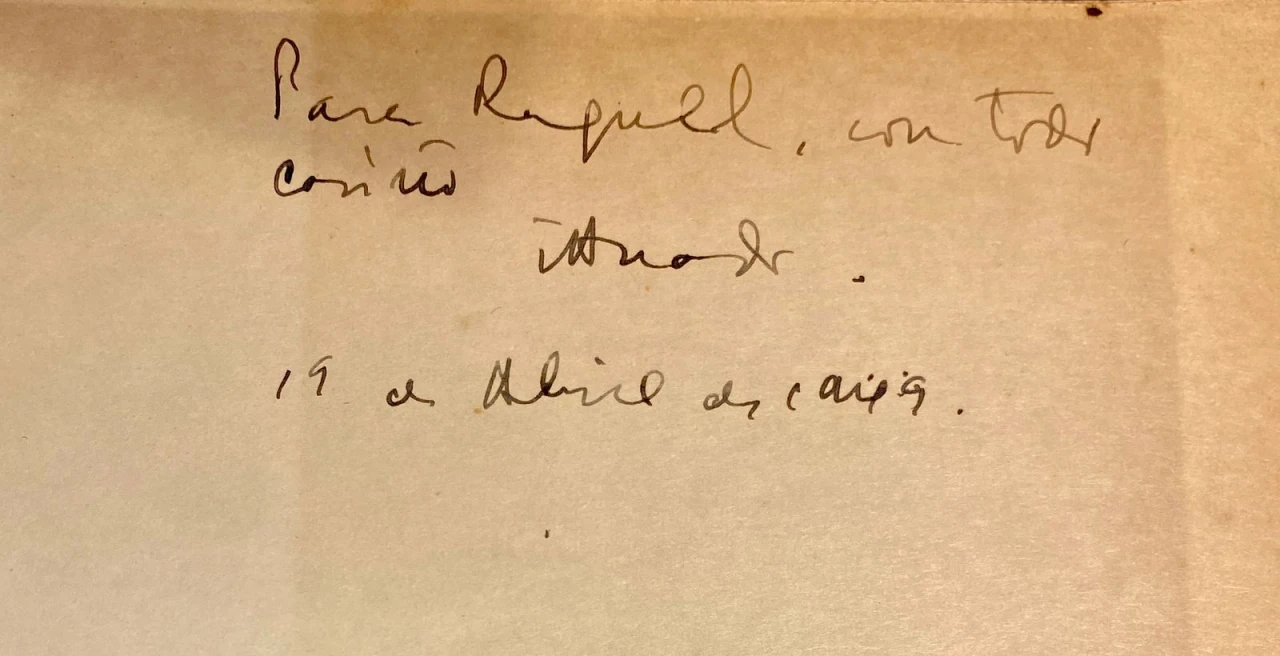 Para Raquel, con todo
cariño
19 de Abril de